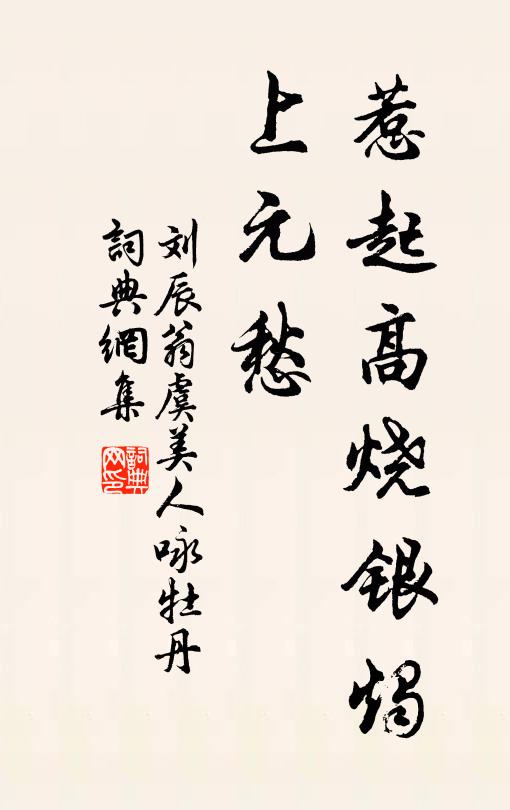 惹起高烧银烛
上元愁
刘辰翁虞美人咏牡丹
詞典網集
詞典
网印